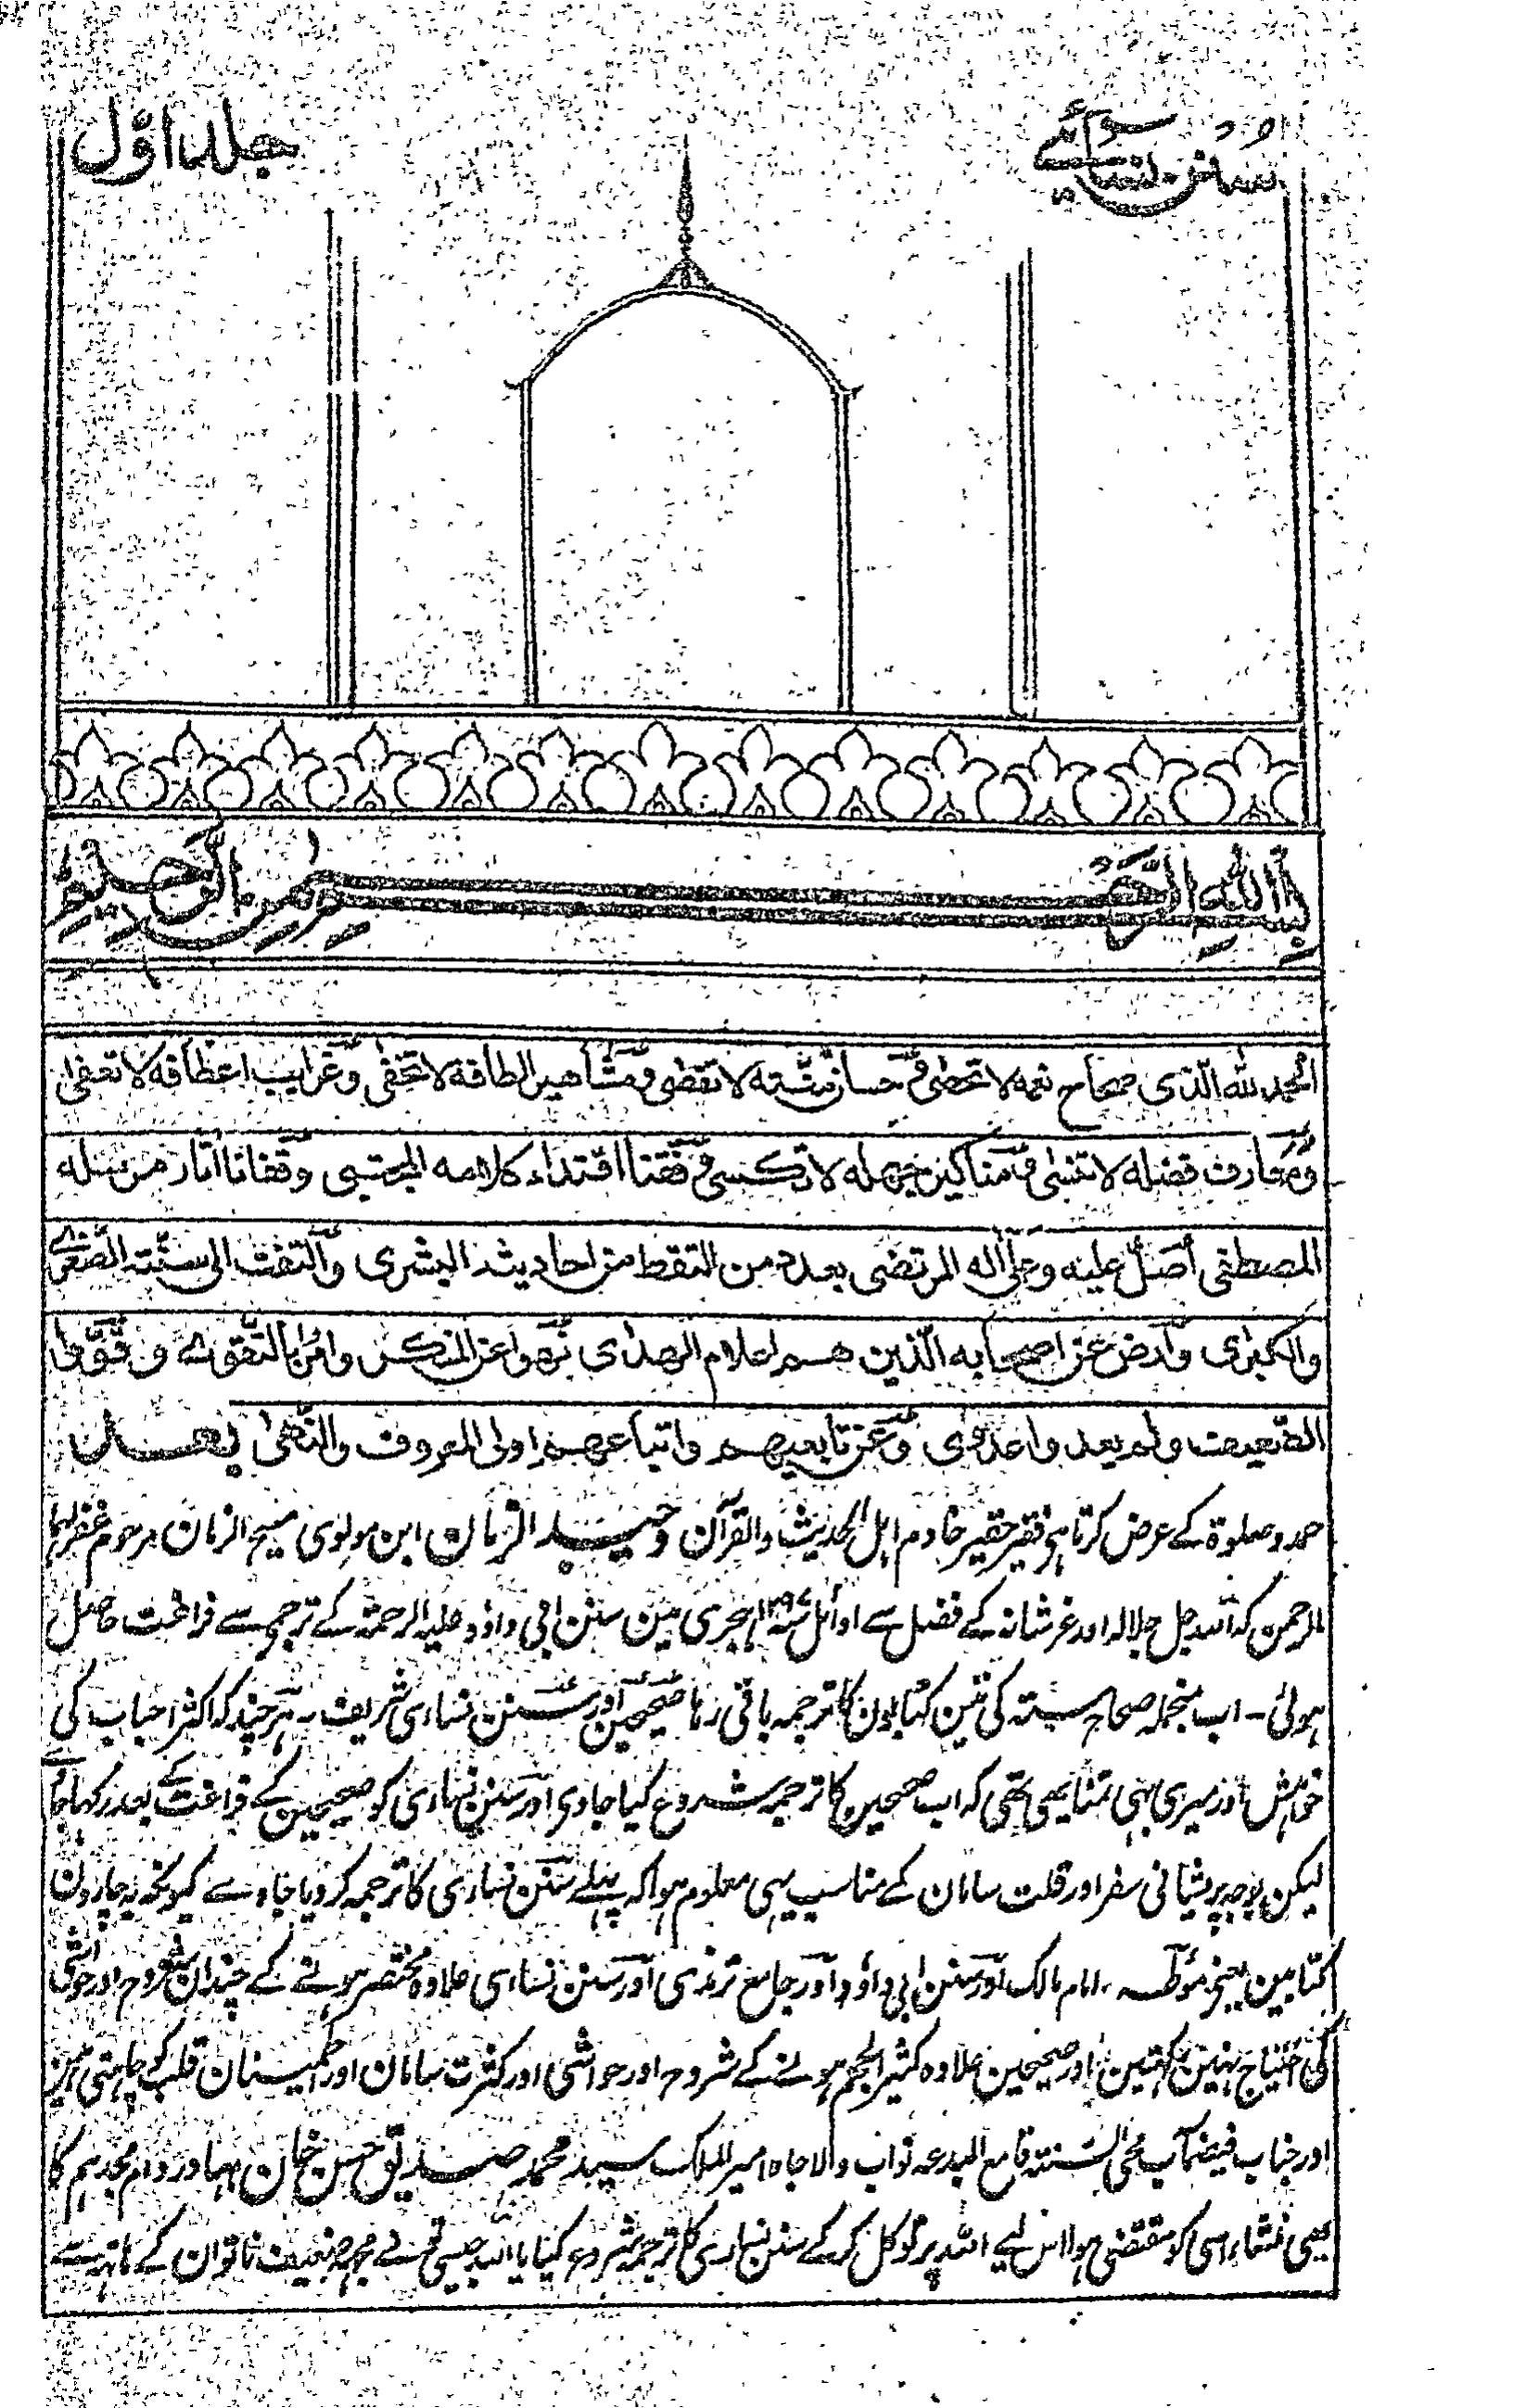 جلد اوّل
سنن نسائی
بسم الله الرحمن الرحيم
الحمد لله الذی صحاح نعمه لا تحصٰی و حسان منّته لا تقصٰی و مشاهير الطافه لا تخفٰی و غرايب اعطافه لا تعفٰی
و معارف فضله لا تنسٰی و مناكير جهله لا تكسٰی وفّقنا اقتداء كلامه المجتبی وقفانا آثار مرسله
المصطفی أصلّ عليه وعلی اله المرتضی بعدد من التقط من احاديثه البشری والتفت الی سنّته الصّغرٰے
والكبرٰی وارض عن اصحابه الّذين هم اعلام الهدٰی نهوا عن المنكر وامروا بالتقوٰے و قوّوا
الضّعيف ولم يعد واعدوٰی وعن تابعيهم واتباعهم اولی المعروف والنّهٰی بعد
حمد و صلوۃ کے عرض کرتا ہی فقیر حقیر خادم اہل الحدیث والقرآن وحید الزمان ابن مولوی مسیح الزمان مرحوم غفر لہما
الرحمن کہ اللہ جل جلالہ اور عز شانہ کے فضل سے اوائل سنہ ہجری مین سنن ابی داؤد علیہ الرحمۃ کے ترجمی سے فراغت حاصل
ہوئی ۔ اب منجملہ صحاح ستہ کی تین کتابون کا ترجمہ باقی رہا صحیحین اور سنن نساءی شریف ۔ ہر چند کہ اکثر احباب کی
خواہش اور میری بہی تمنا یہی تہی کہ اب صحیحین کا ترجمہ شروع کیا جاوی اور سنن نساءی کو صحیحین کے فراغت کے بعد رکہا جائے
لیکن بوجہ پریشانی سفر اور قلت سامان کے مناسب یہی معلوم ہوا کہ پہلے سنن نساءی کا ترجمہ کر دیا جاوے کیونکہ یہ چارون
کتابین یعنی موطّا امام مالک اور سنن ابی داؤد اور جامع ترمذی اور سنن نساءی علاوہ مختصر ہونے کے چندان شروح اور حواشی
کی احتیاج نہین رکہتین اور صحیحین علاوہ کثیر الحجم ہونے کے شروح اور حواشی اور کثرت سامان اور اطمینان قلب کو چاہتی ہین
اور جناب فیضمآب محی السنتہ قامع البدعہ نواب والا جاہ امیر الملک سید محمد صدیق حسن خان بہادر دام مجدہم کا
بہی منشاء اسی کو مقتضی ہوا اس لیے اللہ پر توکل کر کے سنن نساءی کا ترجمہ شروع کیا یا اللہ جیسی تو نے مجہہ ضعیف ناتوان کے ہاتہہ سے